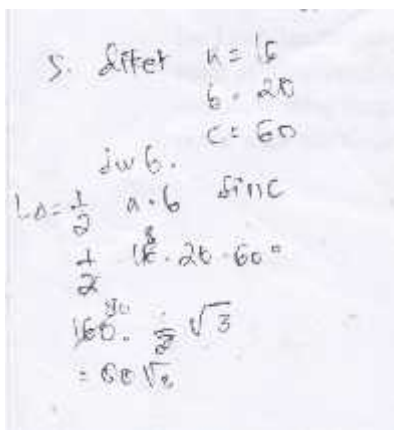 5. diket a = 16
b = 20
c = 60
jwb.
L△ = 1/2 a . b sin c
1/2 16 8 . 20 . 60°
160 80 . 1/2 √3
= 60 √